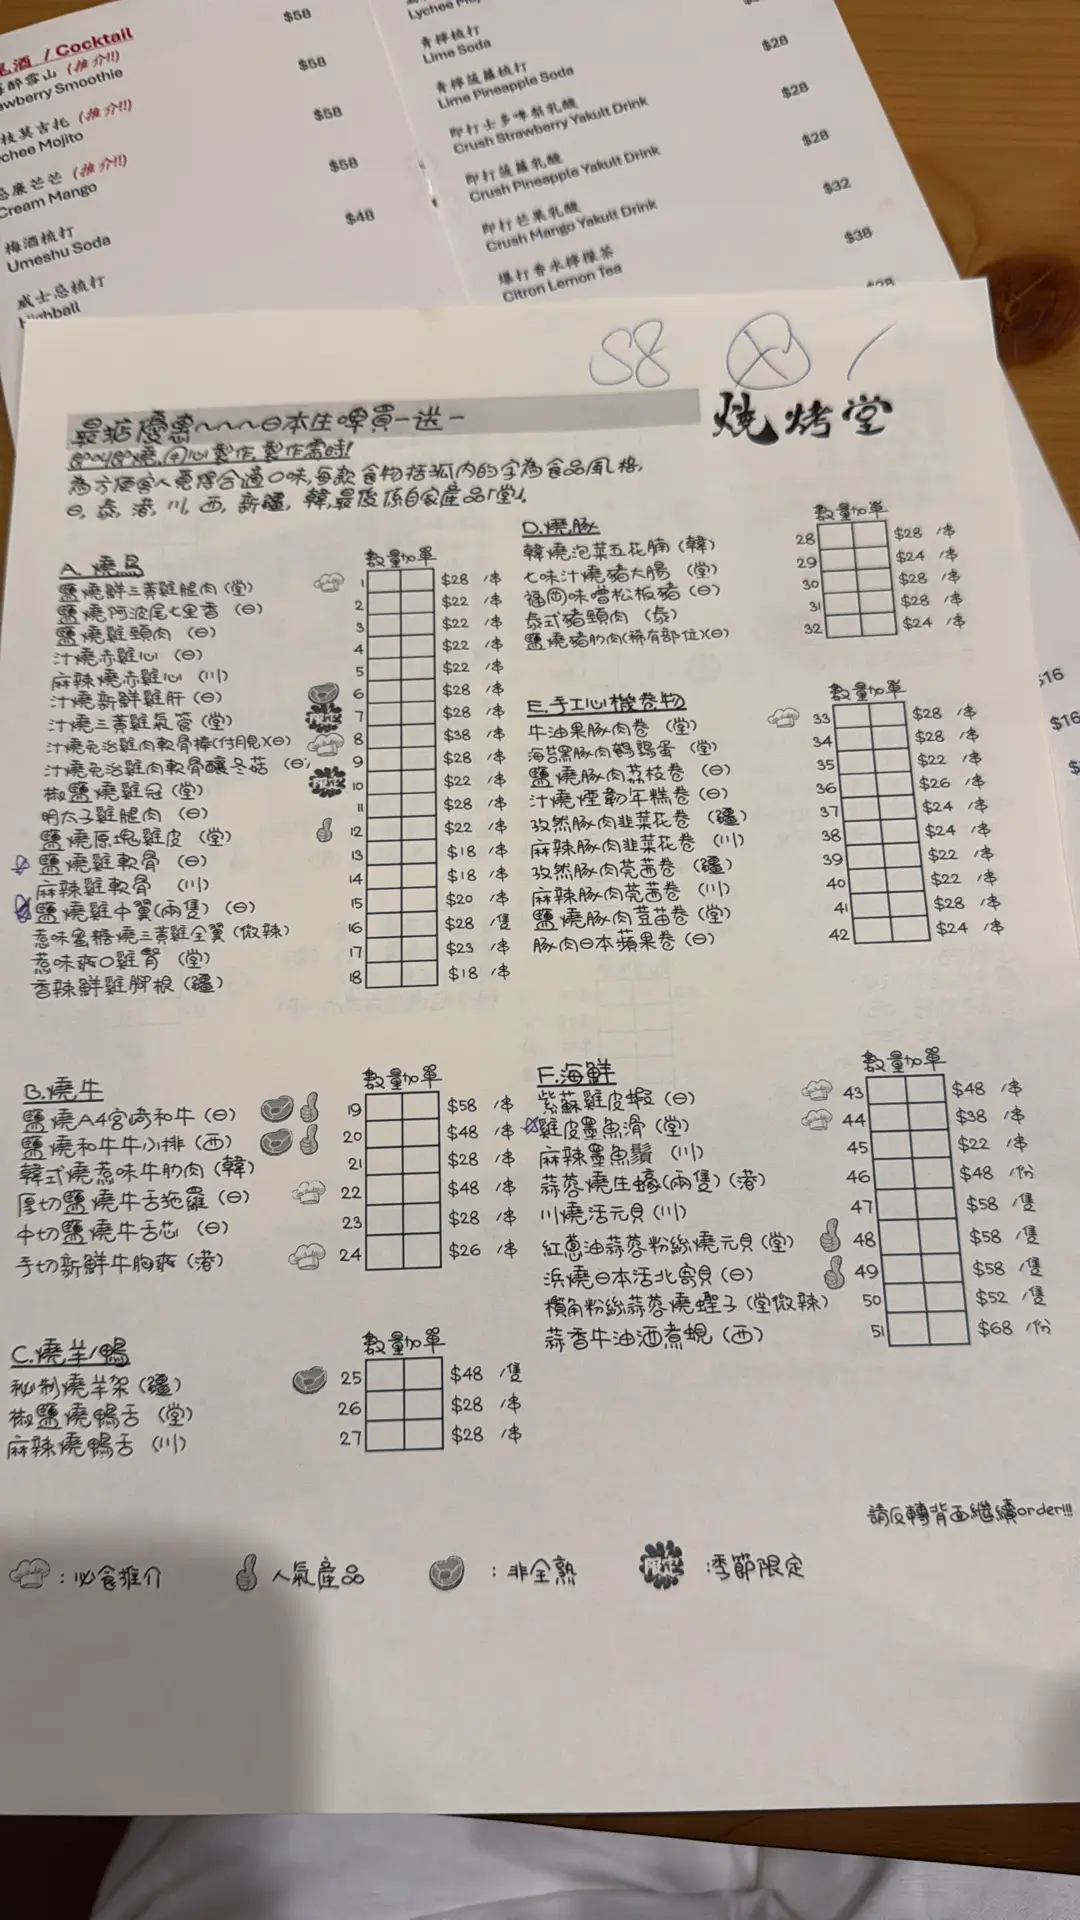 尾酒 / Cocktail
醉雪山 (推介!!)
awberry Smoothie
$58
枝莫吉托 (推介!!)
chee Mojito
$58
芒芒 (推介!!)
Cream Mango
$58
梅酒梳打
Umeshu Soda
$58
威士忌梳打
Highball
$48
Lychee
青檸梳打
Lime Soda
青檸菠蘿梳打
Lime Pineapple Soda
$28
即打士多啤梨乳酸
Crush Strawberry Yakult Drink
$28
即打菠蘿乳酸
Crush Pineapple Yakult Drink
$28
即打芒果乳酸
Crush Mango Yakult Drink
$32
爆打香水檸檬茶
Citron Lemon Tea
$38
58
燒烤堂
最抵優惠~~~日本生啤買一送一
即叫即燒,用心製作,製作需時!
為方便客人覓得合適口味,每款食物括弧內的字為食品風格,
日, 泰, 港, 川, 西, 新疆, 韓,最後係自家產品「堂」.
A. 燒鳥 數量 加單
鹽燒鮮三黃雞腿肉 (堂) 1 $28 /串
鹽燒阿波尾七里香 (日) 2 $22 /串
鹽燒雞頸肉 (日) 3 $22 /串
汁燒赤雞心 (日) 4 $22 /串
麻辣燒赤雞心 (川) 5 $22 /串
汁燒新鮮雞肝 (日) 6 $28 /串
汁燒三黃雞氣管 (堂) 限定 7 $28 /串
汁燒免治雞肉軟骨棒(付月見)(日) 8 $38 /串
汁燒免治雞肉軟骨釀冬菇 (日) 9 $28 /串
椒鹽燒雞冠 (堂) 限定 10 $22 /串
明太子雞腿肉 (日) 11 $28 /串
鹽燒原塊雞皮 (堂) 12 $22 /串
鹽燒雞軟骨 (日) 13 $18 /串
麻辣雞軟骨 (川) 14 $18 /串
鹽燒雞中翼(兩隻) (日) 15 $20 /串
惹味蜜糖燒三黃雞全翼 (微辣) 16 $28 /隻
惹味爽口雞腎 (堂) 17 $23 /串
香辣鮮雞腳根 (疆) 18 $18 /串
B.燒牛 數量 加單
鹽燒A4宮崎和牛 (日) 19 $58 /串
鹽燒和牛牛小排 (西) 20 $48 /串
韓式燒惹味牛肋肉 (韓) 21 $28 /串
厚切鹽燒牛舌拖羅 (日) 22 $48 /串
中切鹽燒牛舌芯 (日) 23 $28 /串
手切新鮮牛胸爽 (港) 24 $26 /串
C.燒羊/鴨 數量 加單
秘制燒羊架 (疆) 25 $48 /隻
椒鹽燒鴨舌 (堂) 26 $28 /串
麻辣燒鴨舌 (川) 27 $28 /串
D.燒豚 數量 加單
韓燒泡菜五花腩 (韓) 28 $28 /串
七味汁燒豬大腸 (堂) 29 $24 /串
福岡味噌松板豬 (日) 30 $28 /串
泰式豬頸肉 (泰) 31 $28 /串
鹽燒豬肋肉(稀有部位)(日) 32 $24 /串
E.手工心機卷物 數量 加單
牛油果豚肉卷 (堂) 33 $28 /串
海苔黑豚肉鵪鶉蛋 (堂) 34 $28 /串
鹽燒豚肉荔枝卷 (日) 35 $22 /串
汁燒煙韌年糕卷 (日) 36 $26 /串
孜然豚肉韭菜花卷 (疆) 37 $24 /串
麻辣豚肉韭菜花卷 (川) 38 $24 /串
孜然豚肉莞茜卷 (疆) 39 $22 /串
麻辣豚肉莞茜卷 (川) 40 $22 /串
鹽燒豚肉荳苗卷 (堂) 41 $28 /串
豚肉日本蘋果卷 (日) 42 $24 /串
F.海鮮 數量 加單
紫蘇雞皮蝦 (日) 43 $48 /串
雞皮墨魚滑 (堂) 44 $38 /串
麻辣墨魚鬚 (川) 45 $22 /串
蒜蓉燒生蠔(兩隻) (港) 46 $48 /份
川燒活元貝 (川) 47 $58 /隻
紅蔥油蒜蓉粉絲燒元貝 (堂) 48 $58 /隻
浜燒日本活北寄貝 (日) 49 $58 /隻
欖角粉絲蒜蓉燒蟶子 (堂微辣) 50 $52 /隻
蒜香牛油酒煮蜆 (西) 51 $68 /份
$16
$16
請反轉背面繼續order!!!
:必食推介 人氣產品 :非全熟 限定 :季節限定